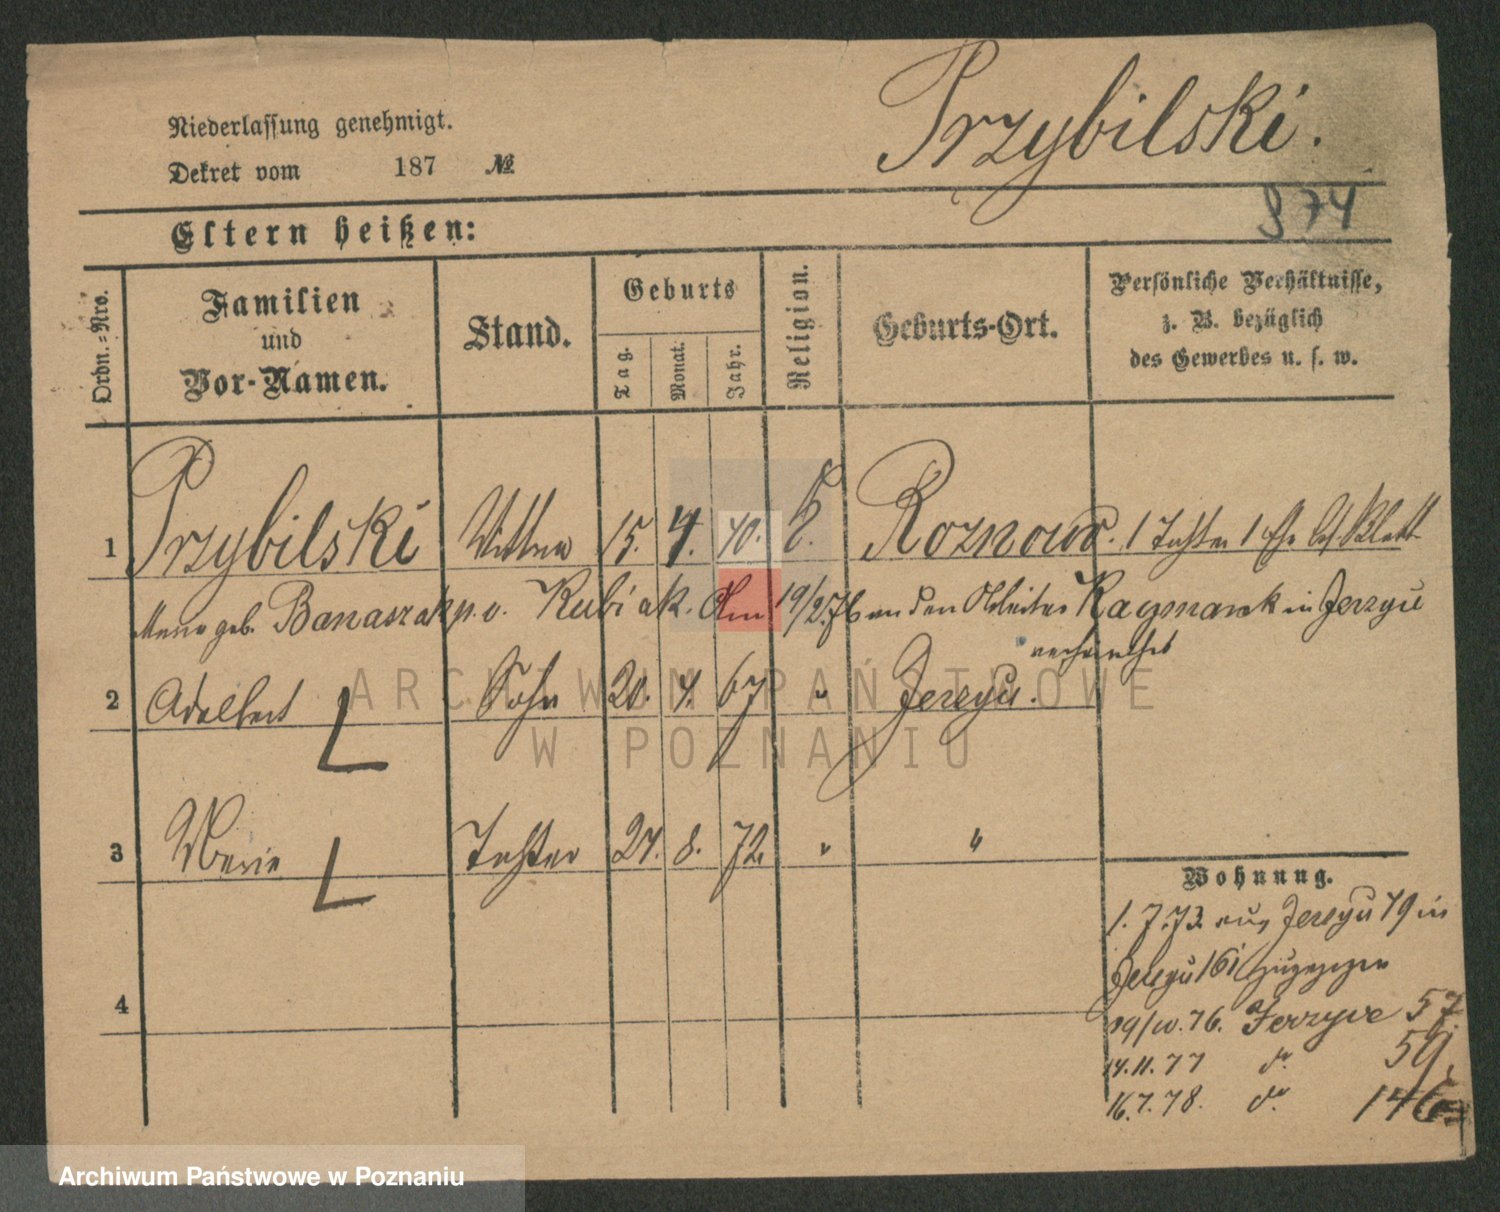 Przybilski.
Niederlassung genehmigt.
Dekret vom 187 №
874
Eltern heißen:
Ordn.-Nro.
Familien
und
Vor-Namen.
Stand.
Geburts
Tag.
Monat.
Jahr.
Religion.
Geburts-Ort.
Persönliche Verhältnisse,
z. B. bezüglich
des Gewerbes u. s. w.
1 Przybilski Wittwe 15. 4. 40. k. Roznowo. 1 Tochter 1 Ehe bes. Blatt
geb. Banaszak p. v. Kubiak. Am 19/2.76 an den Arbeiter Kaczmarek in Jerzyce
verheirathet
2 Adalbert Sohn 20. 4. 67 " Jerzyce.
3 Marie Tochter 24. 8. 72. " "
4
Wohnung.
1. 7. 73. aus Jerzyce 79 in
Jerzyce 161 zugezogen
/10.76. Jerzyce 57.
14.11.77 do. 59.
16.7.78. do. 146
ARCHIWUM PAŃSTWOWE
W POZNANIU
Archiwum Państwowe w Poznaniu